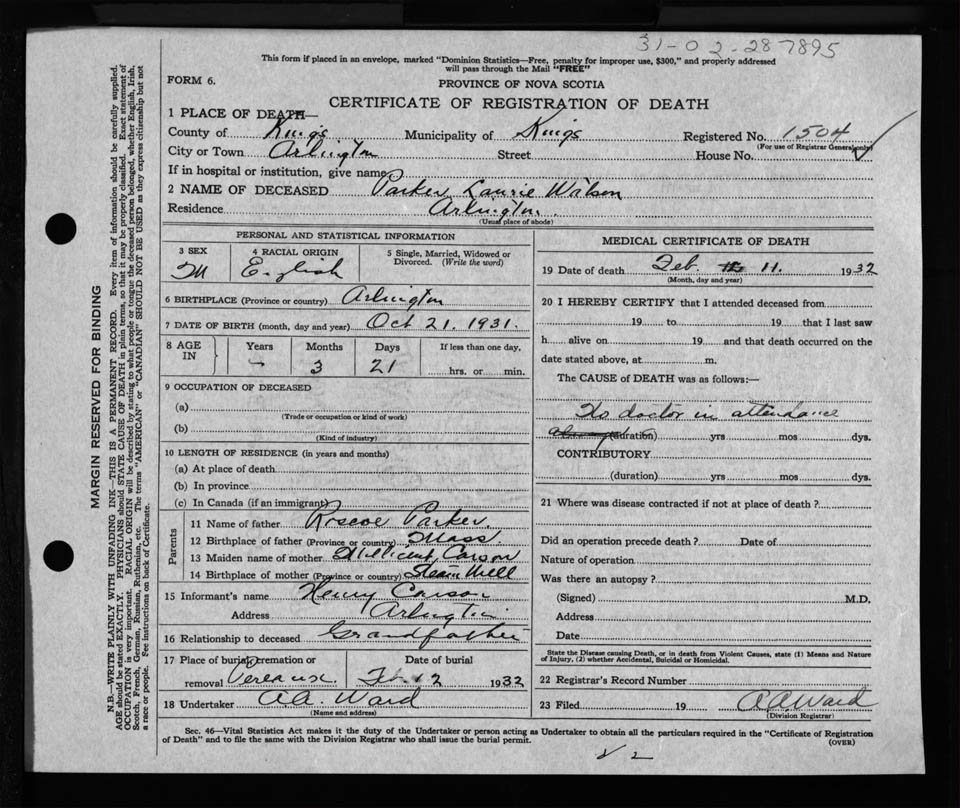 31-02-287895
This form if placed in an envelope, marked "Dominion Statistics—Free, penalty for improper use, $300," and properly addressed
will pass through the Mail "FREE"
FORM 6.
PROVINCE OF NOVA SCOTIA
CERTIFICATE OF REGISTRATION OF DEATH
1 PLACE OF DEATH—
County of Kings Municipality of Kings Registered No. 1504
(For use of Registrar General only)
City or Town Arlington Street House No.
If in hospital or institution, give name
2 NAME OF DECEASED Parker Laurie Watson
Residence Arlington
(Usual place of abode)
PERSONAL AND STATISTICAL INFORMATION
3 SEX 4 RACIAL ORIGIN 5 Single, Married, Widowed or
Divorced. (Write the word)
M English
6 BIRTHPLACE (Province or country) Arlington
7 DATE OF BIRTH (month, day and year) Oct 21. 1931.
8 AGE IN Years Months Days If less than one day,
- 3 21 hrs. or min.
9 OCCUPATION OF DECEASED
(a)
(Trade or occupation or kind of work)
(b)
(Kind of industry)
10 LENGTH OF RESIDENCE (in years and months)
(a) At place of death
(b) In province
(c) In Canada (if an immigrant)
Parents
11 Name of father Roscoe Parker
12 Birthplace of father (Province or country) Mass
13 Maiden name of mother Millicent Carson
14 Birthplace of mother (Province or country) Steam Mill
15 Informant's name Henry Carson
Address Arlington
16 Relationship to deceased Grandfather
17 Place of burial, cremation or Date of burial
removal Pereaux Feb 12 1932
18 Undertaker A.A. Ward
(Name and address)
MEDICAL CERTIFICATE OF DEATH
19 Date of death Feb. 11. 1932
(Month, day and year)
20 I HEREBY CERTIFY that I attended deceased from
19 to 19 that I last saw
h alive on 19 and that death occurred on the
date stated above, at m.
The CAUSE of DEATH was as follows:—
No doctor in attendance
(duration) yrs mos dys.
CONTRIBUTORY
(duration) yrs mos dys.
21 Where was disease contracted if not at place of death?
Did an operation precede death? Date of
Nature of operation
Was there an autopsy?
(Signed) M.D.
Address
Date
State the Disease causing Death, or in death from Violent Causes, state (1) Means and Nature
of Injury, (2) whether Accidental, Suicidal or Homicidal.
22 Registrar's Record Number
23 Filed 19 A.A. Ward
(Division Registrar)
Sec. 46—Vital Statistics Act makes it the duty of the Undertaker or person acting as Undertaker to obtain all the particulars required in the "Certificate of Registration
of Death" and to file the same with the Division Registrar who shall issue the burial permit.
(OVER)
MARGIN RESERVED FOR BINDING
N.B.—WRITE PLAINLY WITH UNFADING INK—THIS IS A PERMANENT RECORD. Every item of information should be carefully supplied.
AGE should be stated EXACTLY. PHYSICIANS should STATE CAUSE OF DEATH in plain terms, so that it may be properly classified. Exact statement of
OCCUPATION is very important. RACIAL ORIGIN will be described by stating to what people or tongue the deceased person belonged, whether English, Irish,
Scotch, French, German, Russian, Ruthenian, etc. The terms "AMERICAN" or "CANADIAN" SHOULD NOT BE USED as they express citizenship but not
a race or people. See instructions on back of Certificate.